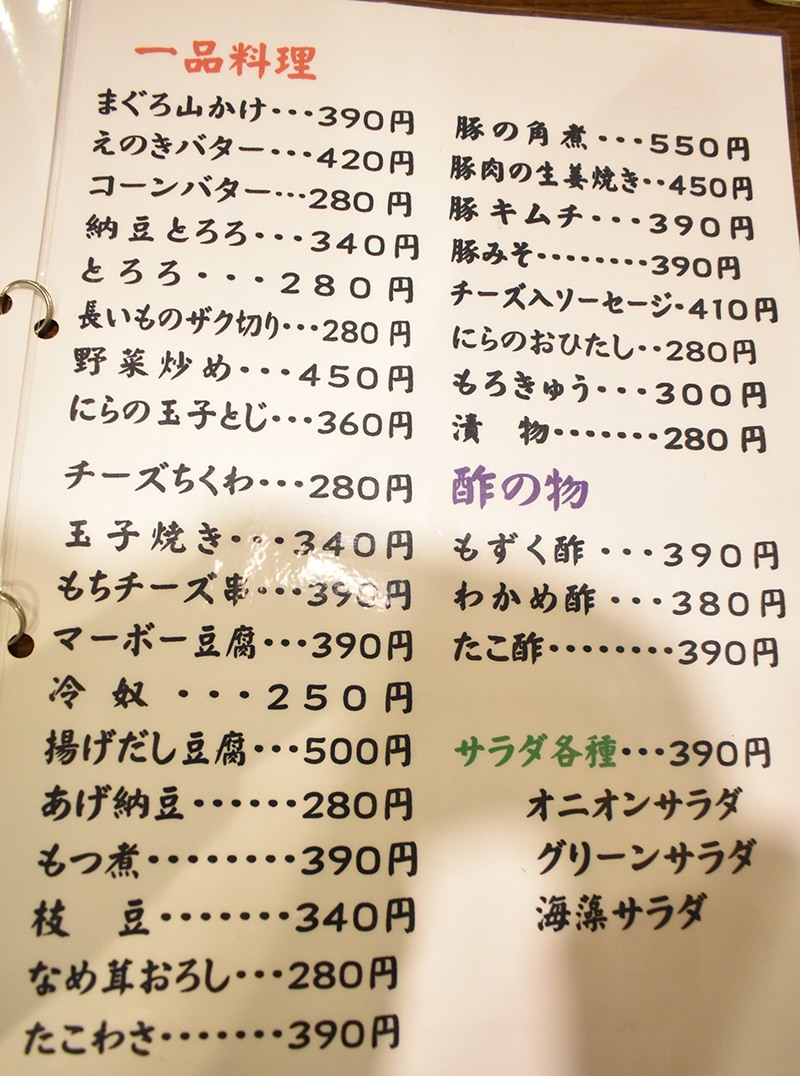 一品料理
まぐろ山かけ・・・390円
えのきバター・・・420円
コーンバター・・・280円
納豆とろろ・・・340円
とろろ・・・280円
長いものザク切り・・・280円
野菜炒め・・・450円
にらの玉子とじ・・・360円
チーズちくわ・・・280円
玉子焼き・・・340円
もちチーズ串・・・390円
マーボー豆腐・・・390円
冷奴・・・250円
揚げだし豆腐・・・500円
あげ納豆・・・・・・280円
もつ煮・・・・・・・・390円
枝 豆・・・・・・・340円
なめ茸おろし・・・280円
たこわさ・・・・・・・390円
豚の角煮・・・550円
豚肉の生姜焼き・・450円
豚キムチ・・・390円
豚みそ・・・・・・・・390円
チーズ入ソーセージ・410円
にらのおひたし・・280円
もろきゅう・・・300円
漬 物・・・・・・・280円
酢の物
もずく酢・・・390円
わかめ酢・・・380円
たこ酢・・・・・・・・390円
サラダ各種・・・390円
オニオンサラダ
グリーンサラダ
海藻サラダ